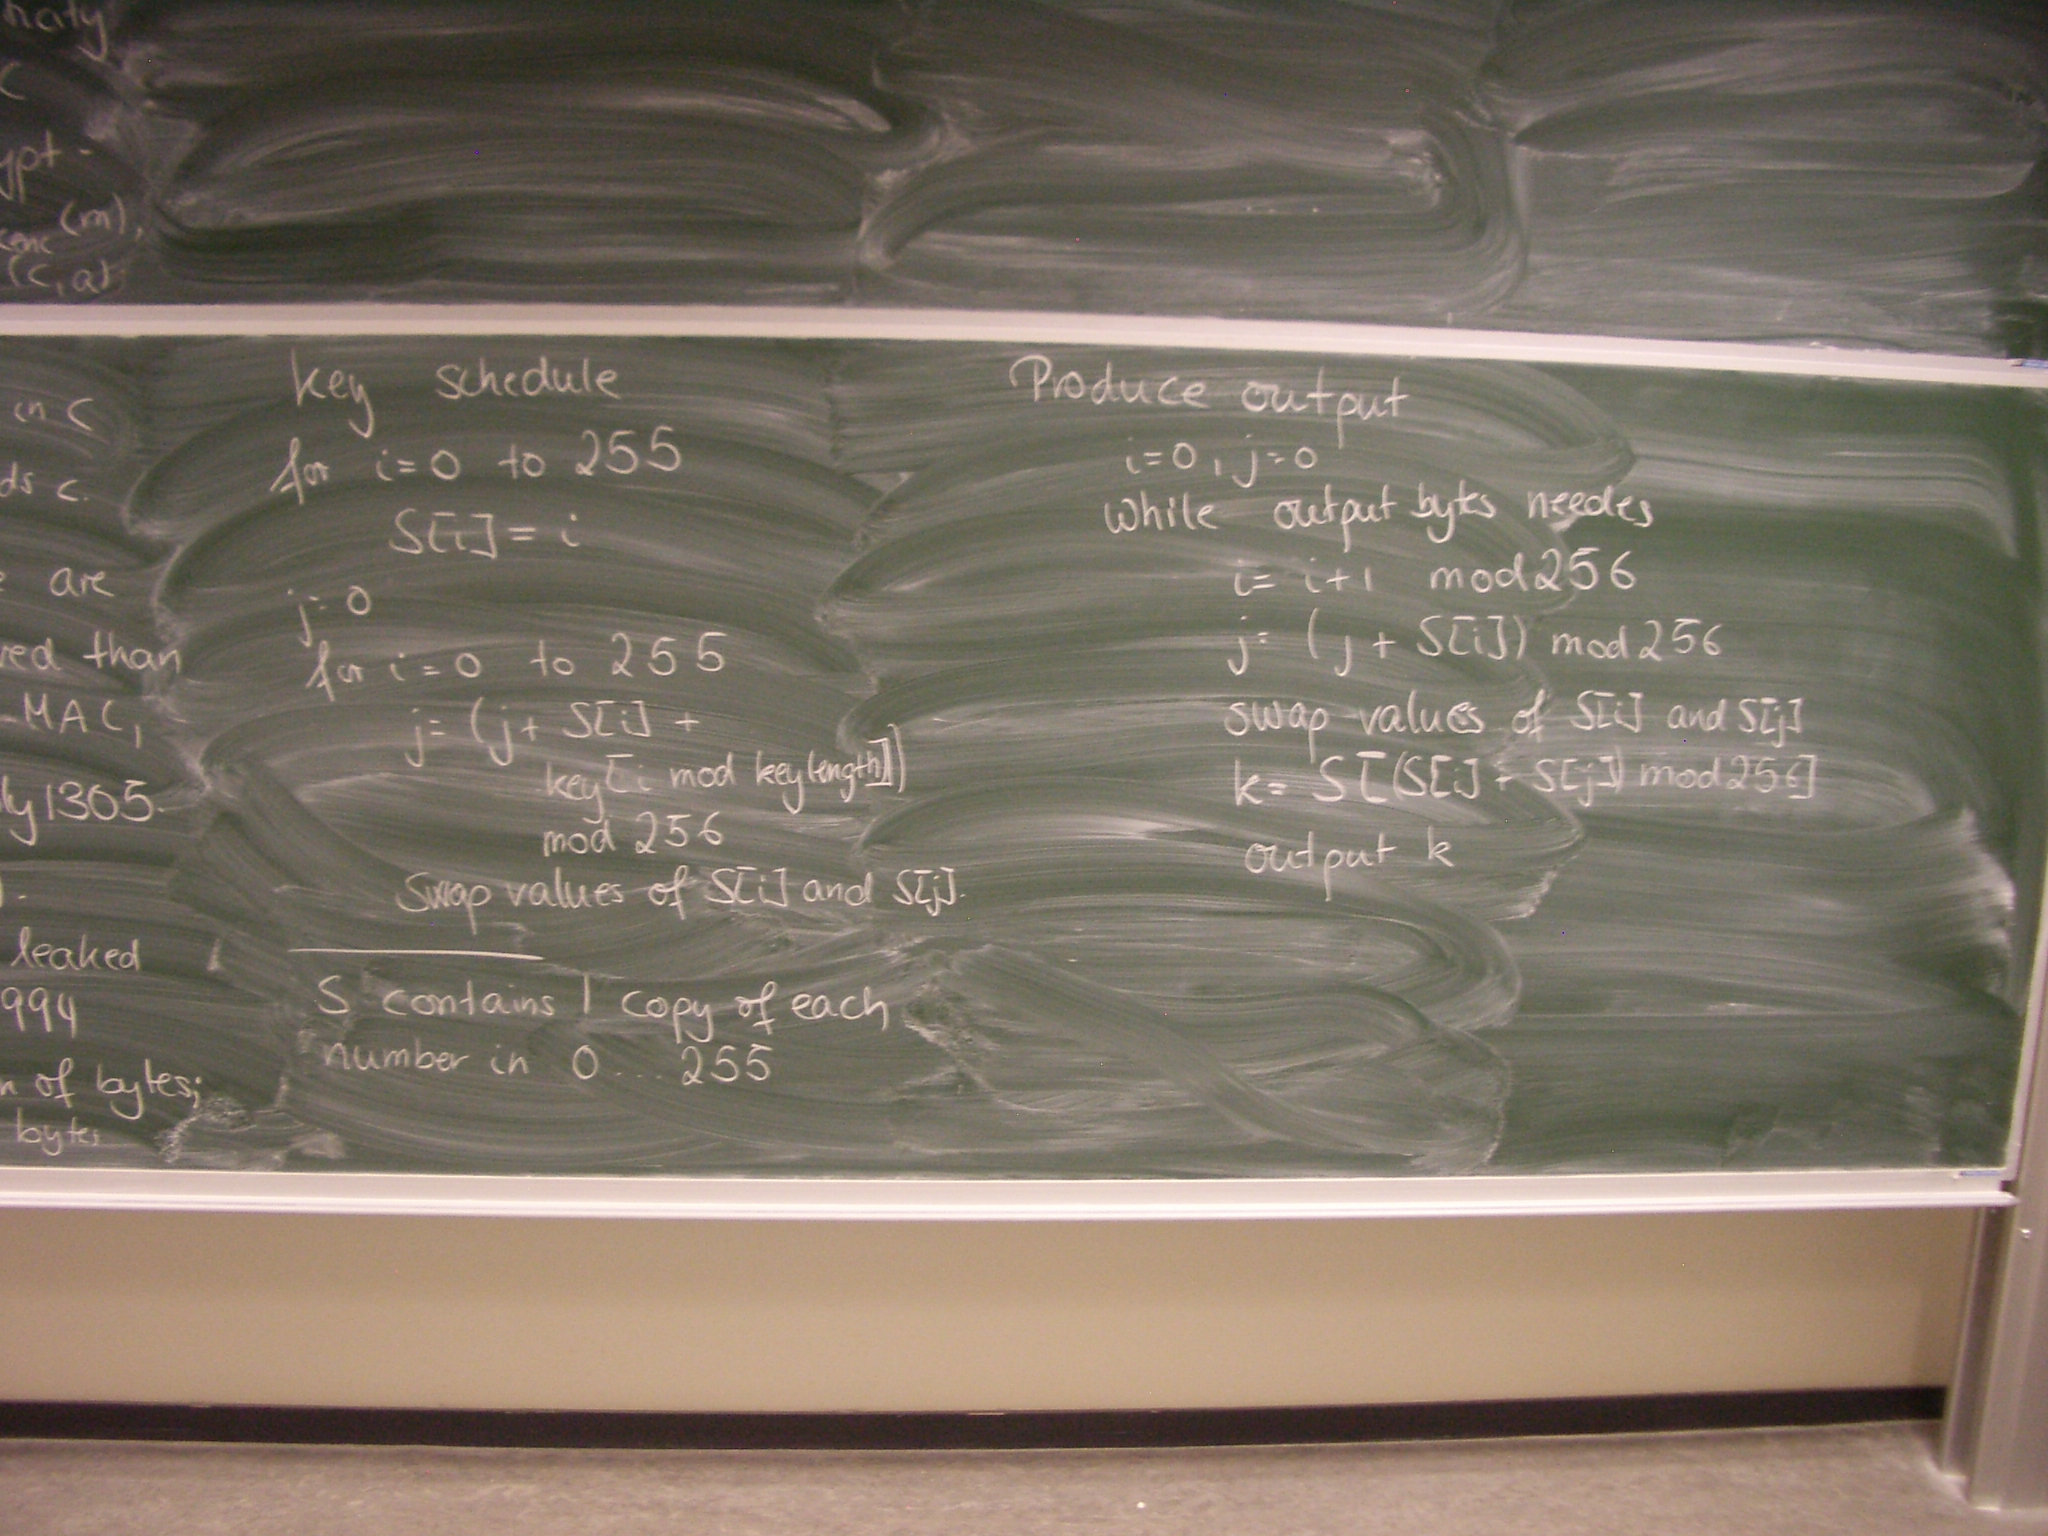 C
(m),
(c, a)
in C
c.
are
than
MAC,
1305.
leaked
994
of bytes;
bytes
key schedule
for i=0 to 255
S[i] = i
j=0
for i=0 to 255
j= (j+ S[i] +
key[i mod keylength])
mod 256
swap values of S[i] and S[j].
S contains 1 copy of each
number in 0...255
Produce output
i=0, j=0
While output bytes needes
i= i+1 mod 256
j= (j + S[i]) mod 256
swap values of S[i] and S[j]
k= S[(S[i] + S[j]) mod 256]
output k